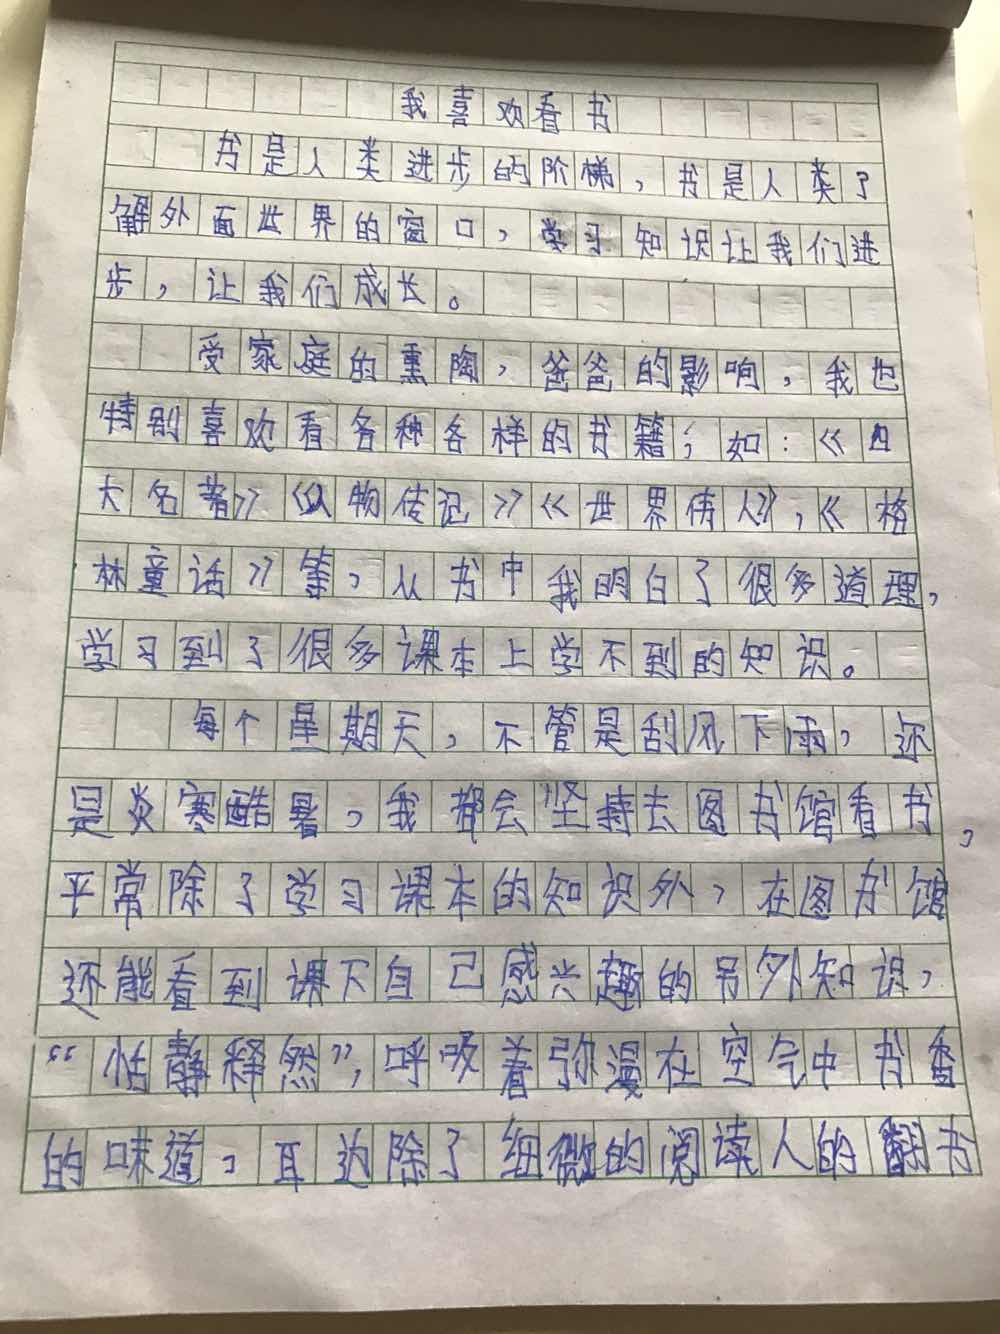 我喜欢看书
书是人类进步的阶梯，书是人类了
解外面世界的窗口，学习知识让我们进
步，让我们成长。
受家庭的熏陶，爸爸的影响，我也
特别喜欢看各种各样的书籍；如：《四
大名著》《人物传记》《世界伟人》，《格
林童话》等，从书中我明白了很多道理，
学习到了很多课本上学不到的知识。
每个星期天，不管是刮风下雨，还
是炎寒酷暑，我都会坚持去图书馆看书，
平常除了学习课本的知识外，在图书馆
还能看到课下自己感兴趣的另外知识，
“恬静释然”，呼吸着弥漫在空气中书香
的味道，耳边除了细微的阅读人的翻书